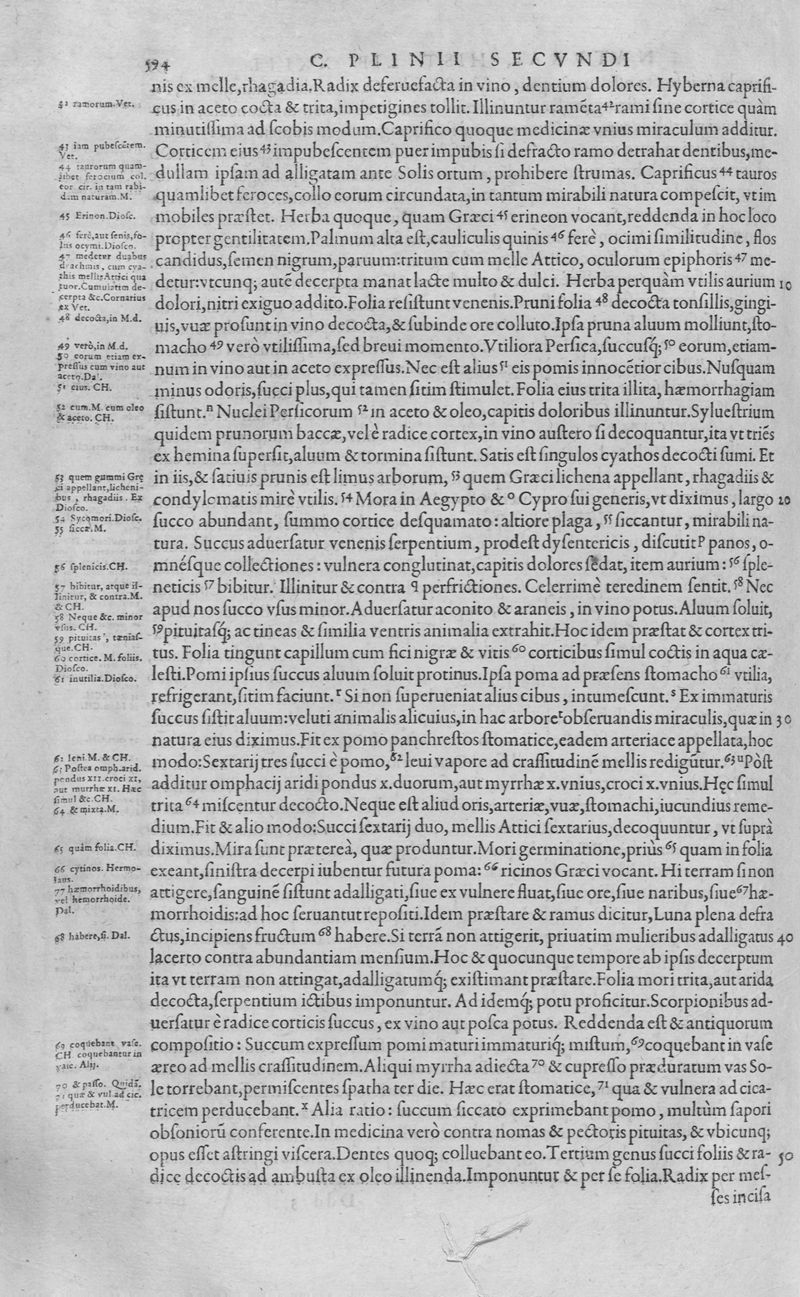 594
C. PLINII SECVNDI
nis ex melle,rhagadia.Radix deferuefacta in vino, dentium dolores. Hyberna caprifi-
cus in aceto cocta & trita,impetigines tollit.Illinuntur ramẽta⁴²rami ſine cortice quàm
minutiſſima ad ſcobis modum.Caprifico quoque medicinæ vnius miraculum additur.
Corticem eius⁴³impubeſcentem puer impubis ſi defracto ramo detrahat dentibus,me-
dullam ipſam ad alligatam ante Solis ortum, prohibere ſtrumas. Caprificus⁴⁴tauros
quamlibet feroces,collo eorum circundata,in tantum mirabili natura compeſcit, vt im
mobiles præſtet. Herba quoque, quam Græci⁴⁵erineon vocant,reddenda in hoc loco
propter gentilitatem.Palmum alta eſt,cauliculis quinis⁴⁶ferè, ocimi ſimilitudine, flos
candidus,ſemen nigrum,paruum:tritum cum melle Attico, oculorum epiphoris⁴⁷me-
detur:vtcunq; autẽ decerpta manat lacte multo & dulci. Herba perquàm vtilis aurium 10
dolori,nitri exiguo addito.Folia reſiſtunt venenis.Pruni folia⁴⁸decocta tonſillis,gingi-
uis,vuæ proſunt in vino decocta,& ſubinde ore colluto.Ipſa pruna aluum molliunt,ſto-
macho⁴⁹verò vtiliſſima,ſed breui momento.Vtiliora Perſica,ſuccuſq;⁵⁰eorum,etiam-
num in vino aut in aceto expreſſus.Nec eſt alius⁵¹eis pomis innocẽtior cibus.Nuſquam
minus odoris,ſucci plus,qui tamen ſitim ſtimulet.Folia eius trita illita, hæmorrhagiam
ſiſtunt.ⁿ Nuclei Perſicorum⁵²in aceto & oleo,capitis doloribus illinuntur.Sylueſtrium
quidem prunorum baccæ,vel è radice cortex,in vino auſtero ſi decoquantur,ita vt triẽs
ex hemina ſuperſit,aluum & tormina ſiſtunt. Satis eſt ſingulos cyathos decocti ſumi. Et
in iis,& ſatiuis prunis eſt limus arborum,⁵³quem Græci lichena appellant, rhagadiis &
condylomatis mirè vtilis.⁵⁴Mora in Aegypto &ᵒ Cypro ſui generis,vt diximus, largo 20
ſucco abundant, ſummo cortice deſquamato: altiore plaga,⁵⁵ſiccantur, mirabili na-
tura. Succus aduerſatur venenis ſerpentium, prodeſt dyſentericis, diſcutitᵖ panos, o-
mnéſque collectiones: vulnera conglutinat,capitis dolores ſedat, item aurium:⁵⁶ſple-
neticis⁵⁷bibitur. Illinitur & contra q perfrictiones. Celerrimè teredinem ſentit.⁵⁸Nec
apud nos ſucco vſus minor.Aduerſatur aconito & araneis, in vino potus.Aluum ſoluit,
⁵⁹pituitaſq; ac tineas & ſimilia ventris animalia extrahit.Hoc idem præſtat & cortex tri-
tus. Folia tingunt capillum cum fici nigræ & vitis⁶⁰corticibus ſimul coctis in aqua cæ-
leſti.Pomi ipſius ſuccus aluum ſoluit protinus.Ipſa poma ad præſens ſtomacho⁶¹vtilia,
refrigerant,ſitim faciunt.ʳ Si non ſuperueniat alius cibus, intumeſcunt.ˢ Ex immaturis
ſuccus ſiſtit aluum:veluti animalis alicuius,in hac arboreᵗobſeruandis miraculis,quæ in 30
natura eius diximus.Fit ex pomo panchreſtos ſtomatice,eadem arteriace appellata,hoc
modo:Sextarij tres ſucci è pomo,⁶²leui vapore ad craſſitudinẽ mellis redigũtur.⁶³ᵘPòſt
additur omphacij aridi pondus x.duorum,aut myrrhæ x.vnius,croci x.vnius.Hęc ſimul
trita⁶⁴miſcentur decocto.Neque eſt aliud oris,arteriæ,vuæ,ſtomachi,iucundius reme-
dium.Fit & alio modo:Succi ſextarij duo, mellis Attici ſextarius,decoquuntur, vt ſuprà
diximus.Mira ſunt præterea, quæ produntur.Mori germinatione,priùs⁶⁵quam in folia
exeant,ſiniſtra decerpi iubentur futura poma:⁶⁶ricinos Græci vocant. Hi terram ſi non
attigere,ſanguinẽ ſiſtunt adalligati,ſiue ex vulnere fluat,ſiue ore,ſiue naribus,ſiue⁶⁷hæ-
morrhoidis:ad hoc ſeruantur repoſiti.Idem præſtare & ramus dicitur,Luna plena defra
ctus,incipiens fructum⁶⁸habere.Si terrã non attigerit, priuatim mulieribus adalligatus 40
lacerto contra abundantiam menſium.Hoc & quocunque tempore ab ipſis decerptum
ita vt terram non attingat,adalligatumq́; exiſtimant præſtare.Folia mori trita,aut arida
decocta,ſerpentium ictibus imponuntur. Ad idemq́; potu proficitur.Scorpionibus ad-
uerſatur è radice corticis ſuccus, ex vino aut poſca potus. Reddenda eſt & antiquorum
compoſitio: Succum expreſſum pomi maturi immaturiq́; miſtum,⁶⁹coquebant in vaſe
æreo ad mellis craſſitudinem.Aliqui myrrha adiecta⁷⁰& cupreſſo præduratum vas So-
le torrebant,permiſcentes ſpatha ter die. Hæc erat ſtomatice,⁷¹qua & vulnera ad cica-
tricem perducebant.ˣ Alia ratio: ſuccum ſiccato exprimebant pomo, multùm ſapori
obſoniorũ conferente.In medicina verò contra nomas & pectoris pituitas, & vbicunq;
opus eſſet aſtringi viſcera.Dentes quoq; colluebant eo.Tertium genus ſucci foliis & ra- 50
dice decoctis ad ambuſta ex oleo illinenda.Imponuntur & per ſe folia.Radix per meſ-
ſes inciſa
42 ramorum.Vet.
43 iam pubeſcẽtem.
Vet.
44 taurorum quam-
libet ferocium col.
eor. cir. in tam rabi-
dam naturam.M.
45 Erinon.Dioſc.
46 ferè,aut ſenis,fo-
liis ocymi.Dioſco.
47 medetur duabus
drachmis, cum cya-
this mellis Attici qua
tuor.Cumulatim de-
cerpta &c.Cornarius
ex Vet.
48 decocta,in M.d.
49 verò,in M.d.
50 eorum etiam ex-
preſſus cum vino aut
aceto.Dal.
51 eius. CH.
52 cum.M. cum oleo
& aceto. CH.
53 quem gummi Gre
ci appellant,licheni-
bus, rhagadiis. Ex
Dioſco.
54 Sycomori.Dioſc.
55 ſiccat.M.
56 ſplenicis.CH.
57 bibitur, atque il-
linitur, & contra.M.
& CH.
58 Neque &c. minor
vſus. CH.
59 pituitas, tæniaſ-
que.CH.
60 cortice. M. foliis.
Dioſco.
61 inutilia.Dioſco.
62 leni.M. & CH.
63 Poſtea omph.arid.
pondus XII.croci XI,
aut murrhæ XI. Hæc
ſimul &c.CH.
64 & mixta.M.
65 quàm folia.CH.
66 cytinos. Hermo-
laus.
77 hæmorrhoidibus,
vel hemorrhoide.
Dal.
68 habere,ſi. Dal.
69 coquebant vaſe.
CH coquebantur in
vaſe. Alij.
70 & paſſo. Quidã.
71 quæ & vul ad cic.
perducebat.M.